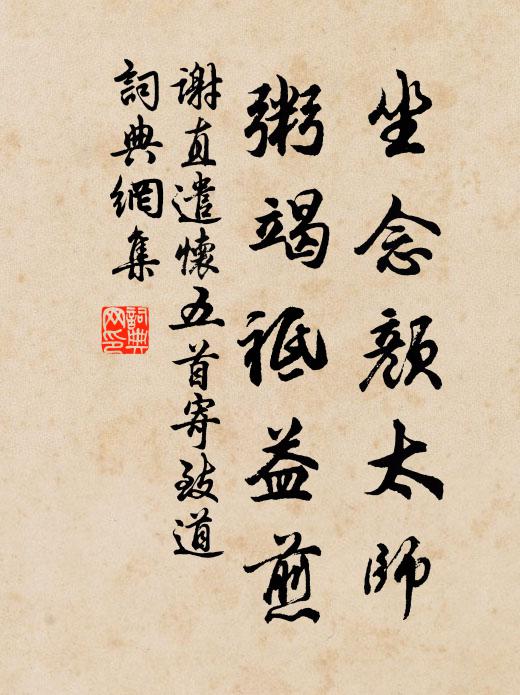 坐念顏太師
粥竭祗益煎
謝直遣懷五首寄致道
詞典網集
詞典网印